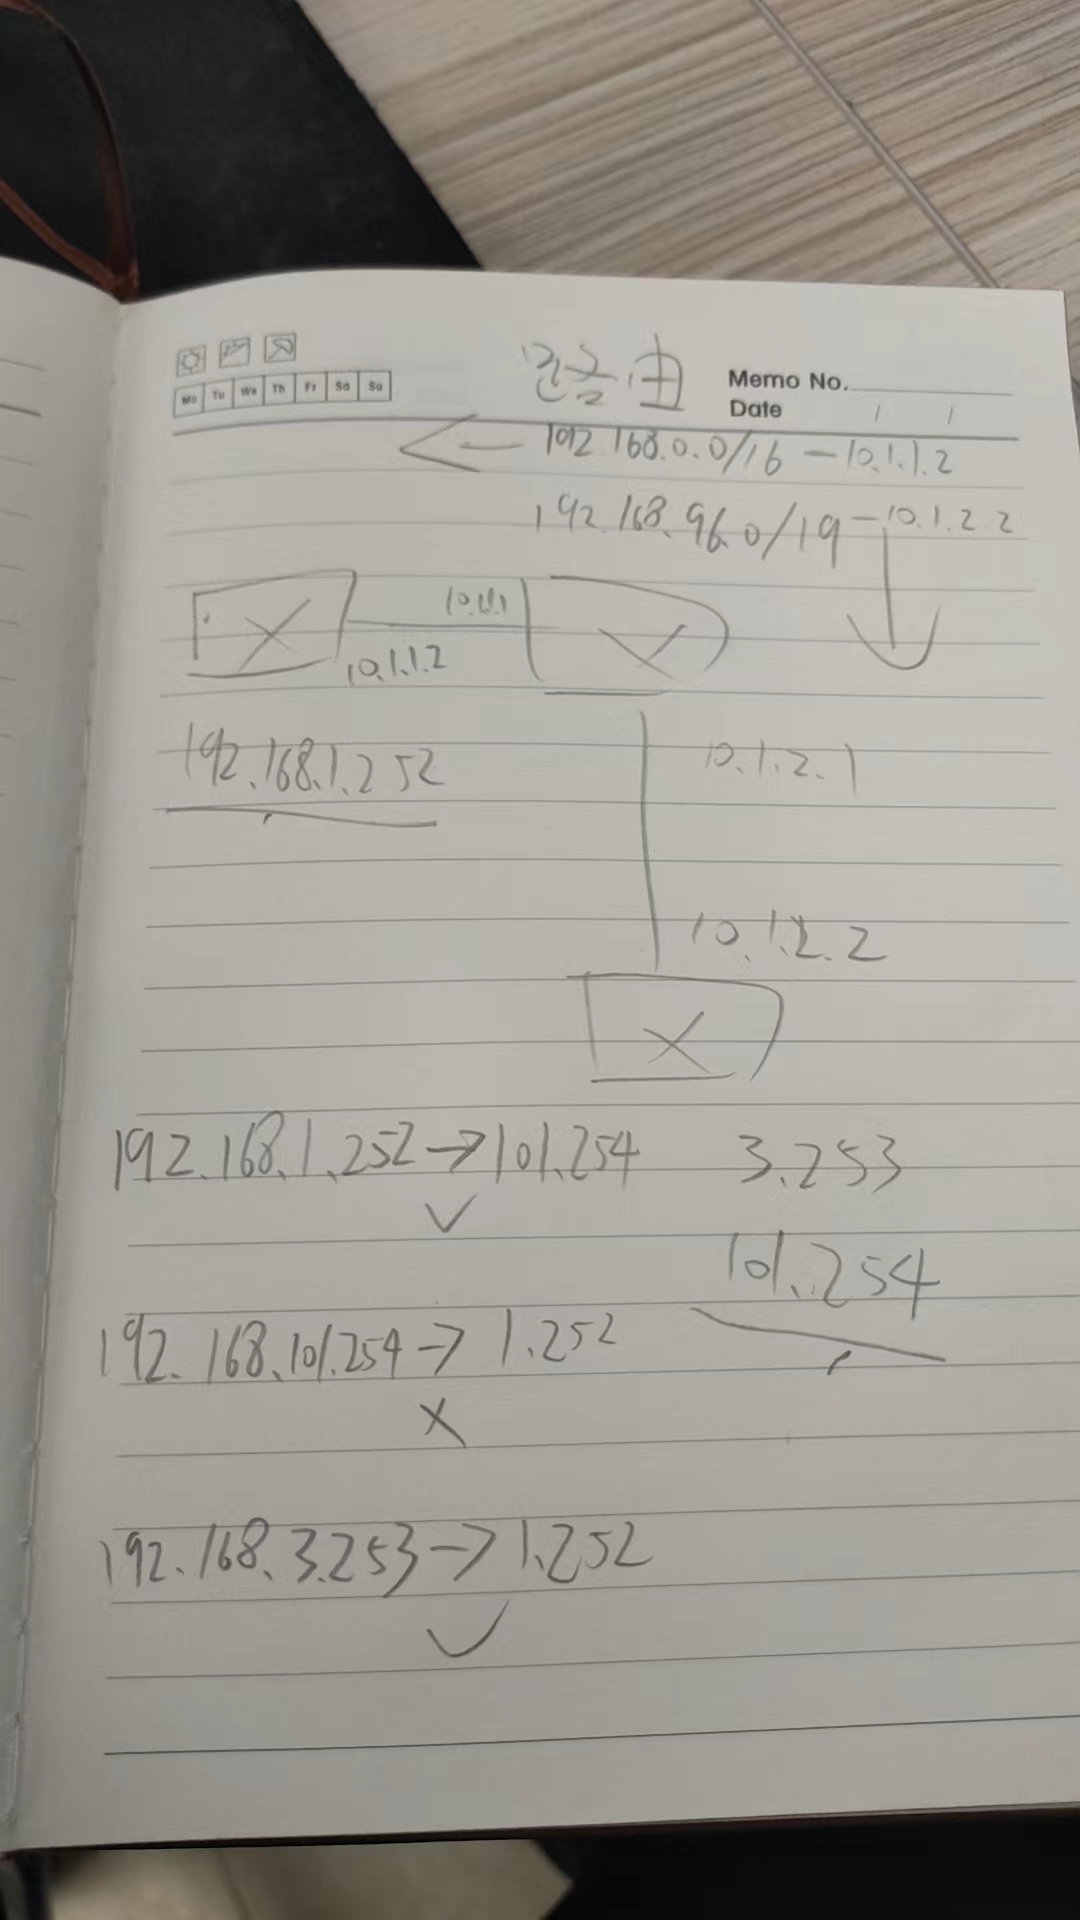 路由
Memo No.
Mo Tu We Th Fr Sa Su
Date / /
192.168.0.0/16 — 10.1.1.2
192.168.96.0/19 — 10.1.2.2
10.1.1.1
10.1.1.2
192.168.1.252
10.1.2.1
10.1.2.2
192.168.1.252 → 101.254
3.253
101.254
192.168.101.254 → 1.252
X
192.168.3.253 → 1.252